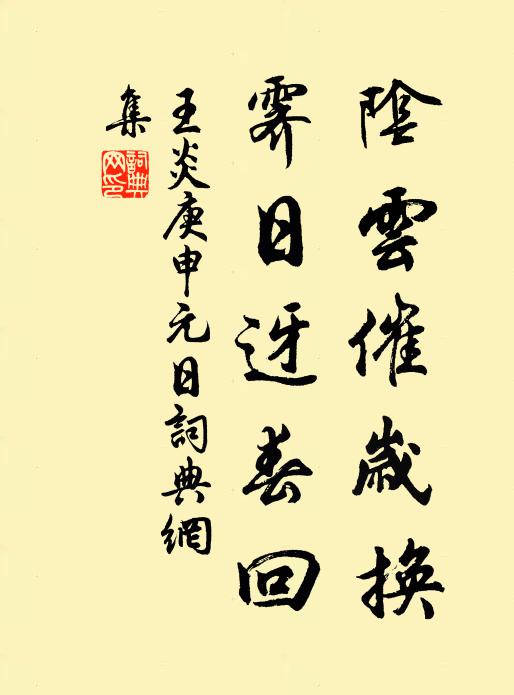 陰雲催歲換
霽日迓春回
王炎庚申元日詞典網
集
詞典
网印